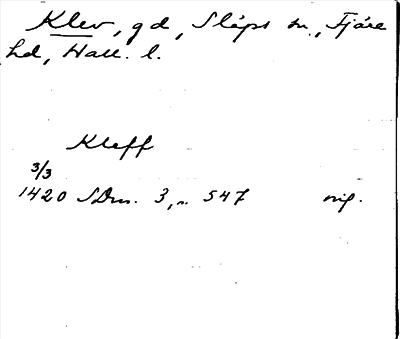 Klev, gd, Släps sn., Fjäre
hd, Hall. l.
Kleff
3/3
1420 SDns. 3, n. 547 orig.